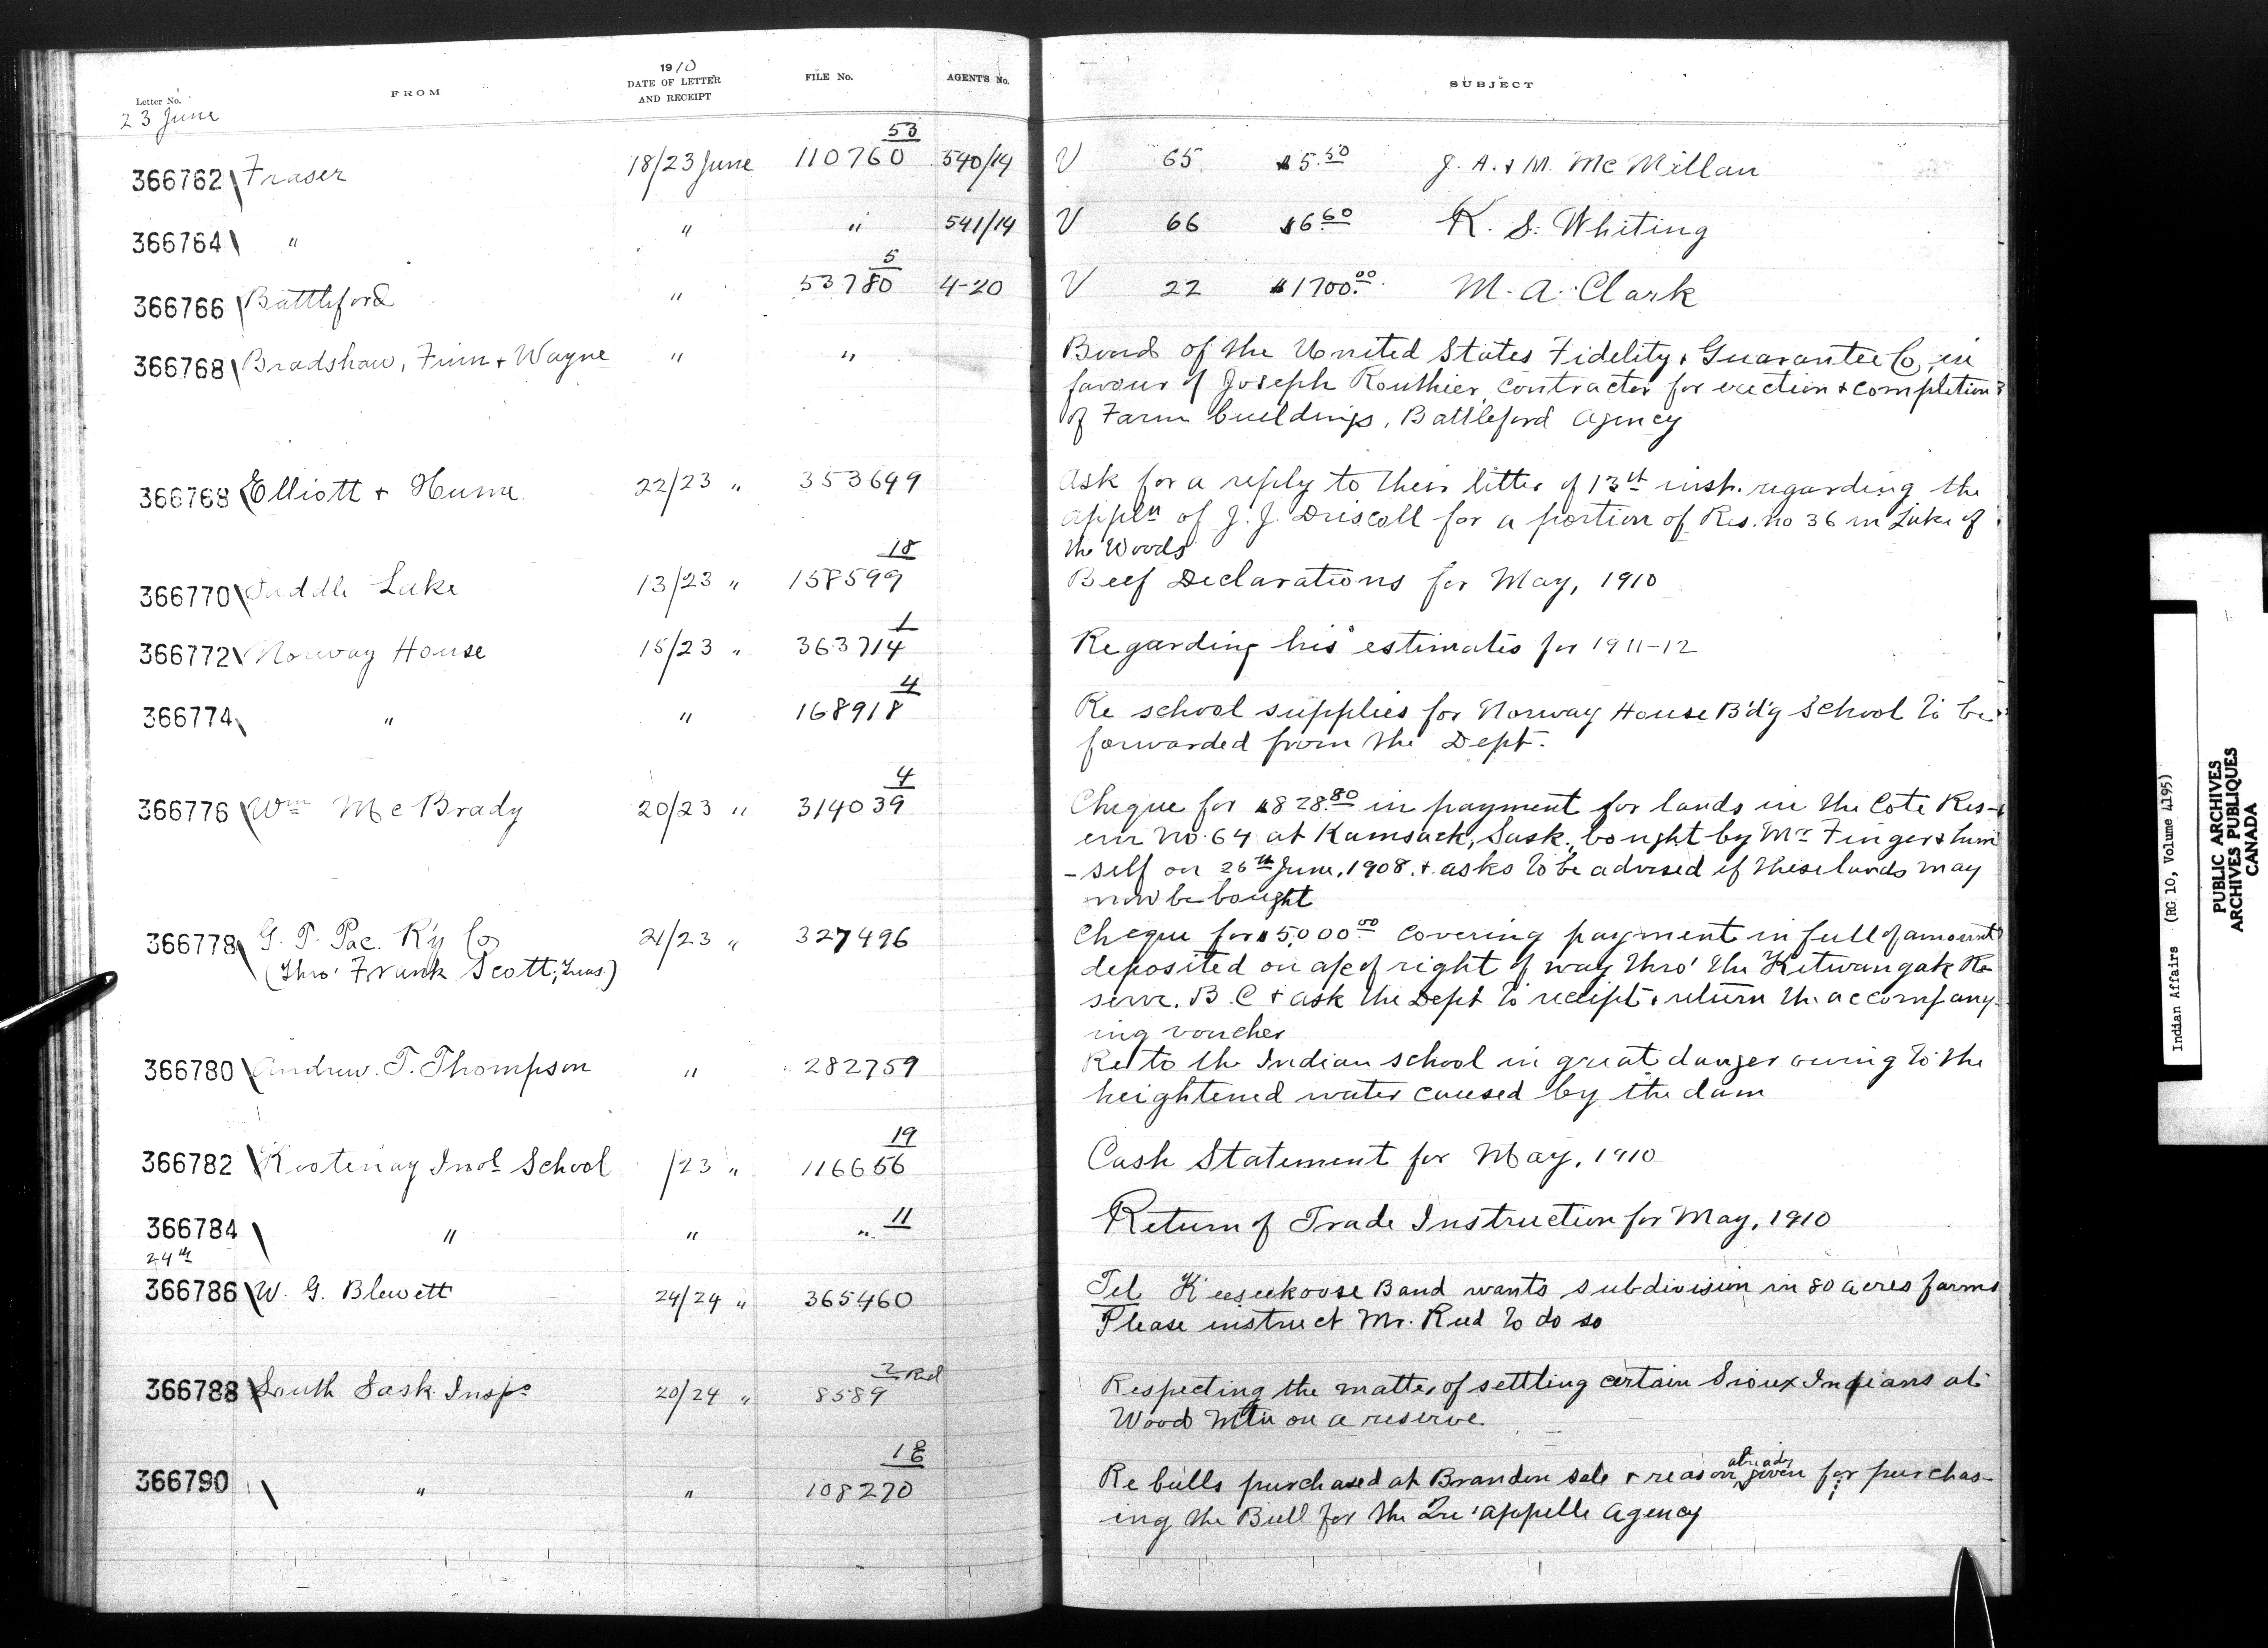 Letter No.
FROM
1910
DATE OF LETTER
AND RECEIPT
FILE No.
AGENTS No.
SUBJECT
23 June
53
366762 Fraser 18/23 June 110760 540/14 V 65 $5.50 J. A. & M. McMillan
366764 " " " 541/14 V 66 $6.60 K. S. Whiting
5
366766 Battleford " 53780 4-20 V 22 $1700.00 M. A. Clark
366768 Bradshaw, Finn & Wayne " " Bond of the United States Fidelity & Guarantee Co, in
favour of Joseph Routhier, contractor for erection & completion
of Farm buildings, Battleford Agency
366768 Elliott & Hume 22/23 " 353649 Ask for a reply to their letter of 13th inst. regarding the
appln of J. J. Driscoll for a portion of Res. no 36 in Lake of
the Woods
18
366770 Saddle Lake 13/23 " 158599 Beef Declarations for May, 1910
1
366772 Norway House 15/23 " 363714 Regarding his estimates for 1911-12
4
366774 " " 168918 Re school supplies for Norway House B'd'g School to be
forwarded from the Dept.
4
366776 Wm McBrady 20/23 " 314039 Cheque for $828.80 in payment for lands in the Cote Res-
erve no. 64 at Kamsack, Sask., bought by Mr Finger & him
-self on 26th June, 1908. & asks to be advised if these lands may
now be bought
366778 G. T. Pac. R'y Co 21/23 " 327496 Cheque for $5,000.00 covering payment in full of amount
(Thro' Frank Scott, Treas.) deposited on a/c of right of way thro' the Kitwangak Re
serve. B. C & ask the Dept to receipt & return the accompany-
ing voucher
366780 Andrew. T. Thompson " 282759 Re to the Indian school in great danger owing to the
heightened water caused by the dam
19
366782 Kootenay Indl School /23 " 116656 Cash Statement for May, 1910
11
366784 " " " Return of Trade Instruction for May, 1910
24th
366786 W. G. Blewett 24/24 " 365460 Tel Keeseekoose Band wants subdivision in 80 acres farms
Please instruct Mr. Reid to do so
2 Red
366788 South Sask. Inspo 20/24 " 8589 Respecting the matter of settling certain Sioux Indians at
Wood Mtn on a reserve
18
already
366790 " " 108270 Re bulls purchased at Brandon sale & reason given for purchas-
ing the Bull for the Qu'appelle Agency
Indian Affairs (RG 10, Volume 4195)
PUBLIC ARCHIVES
ARCHIVES PUBLIQUES
CANADA